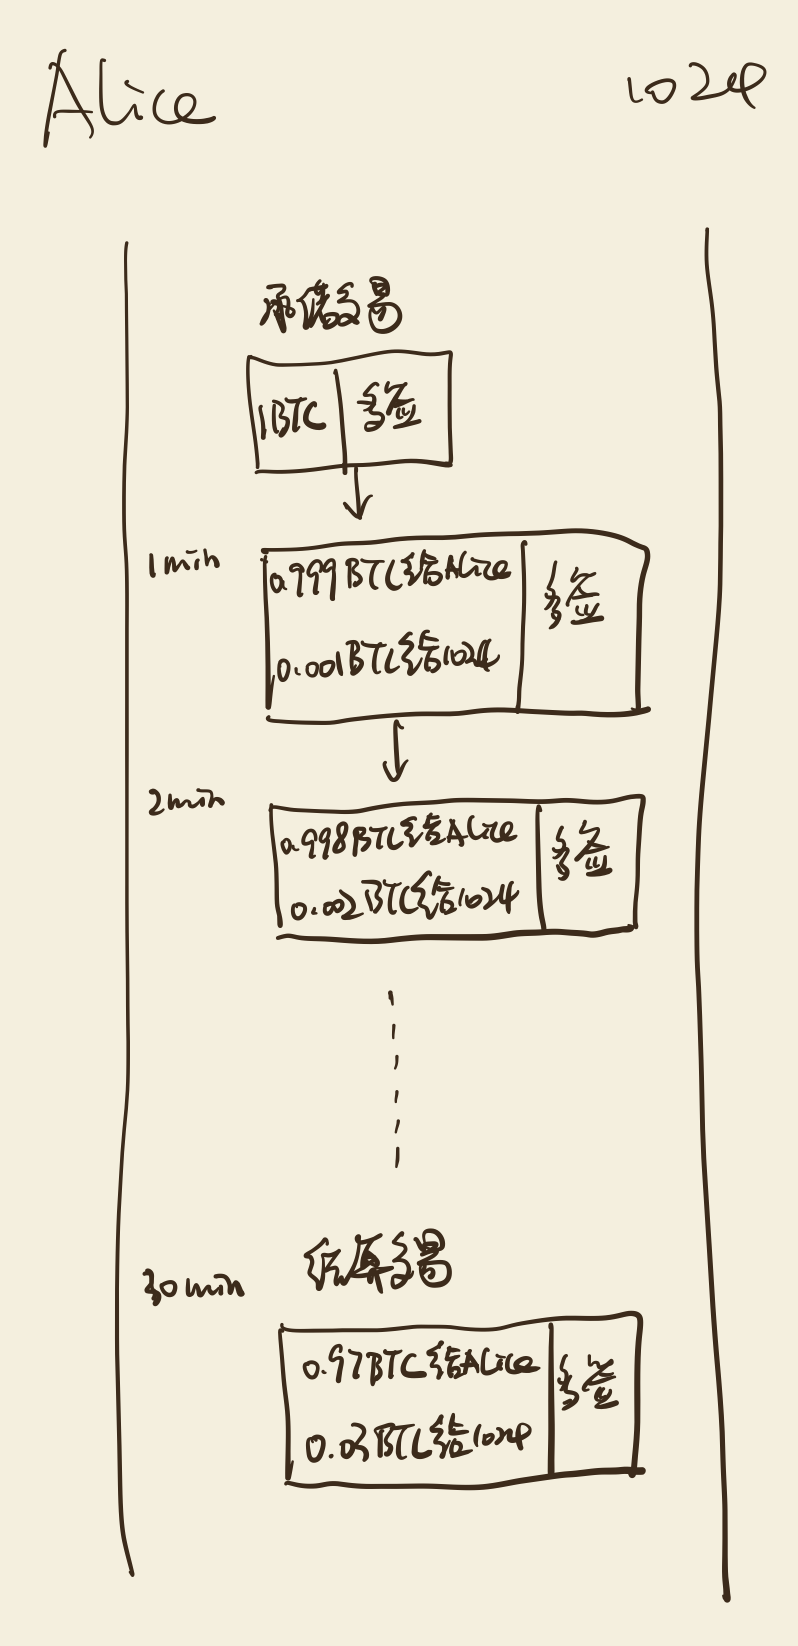 Alice
1024
承储交易
1BTC
多签
1min
0.999BTC给Alice
0.001BTC给1024
多签
2min
0.998BTC给Alice
0.002BTC给1024
多签
30min
交易
0.97BTC给Alice
0.03BTC给1024
多签